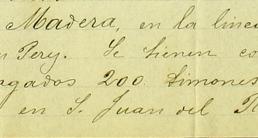 Madera, en la linea
Pery. Se tienen co
agados 200 limones
en S. Juan del R